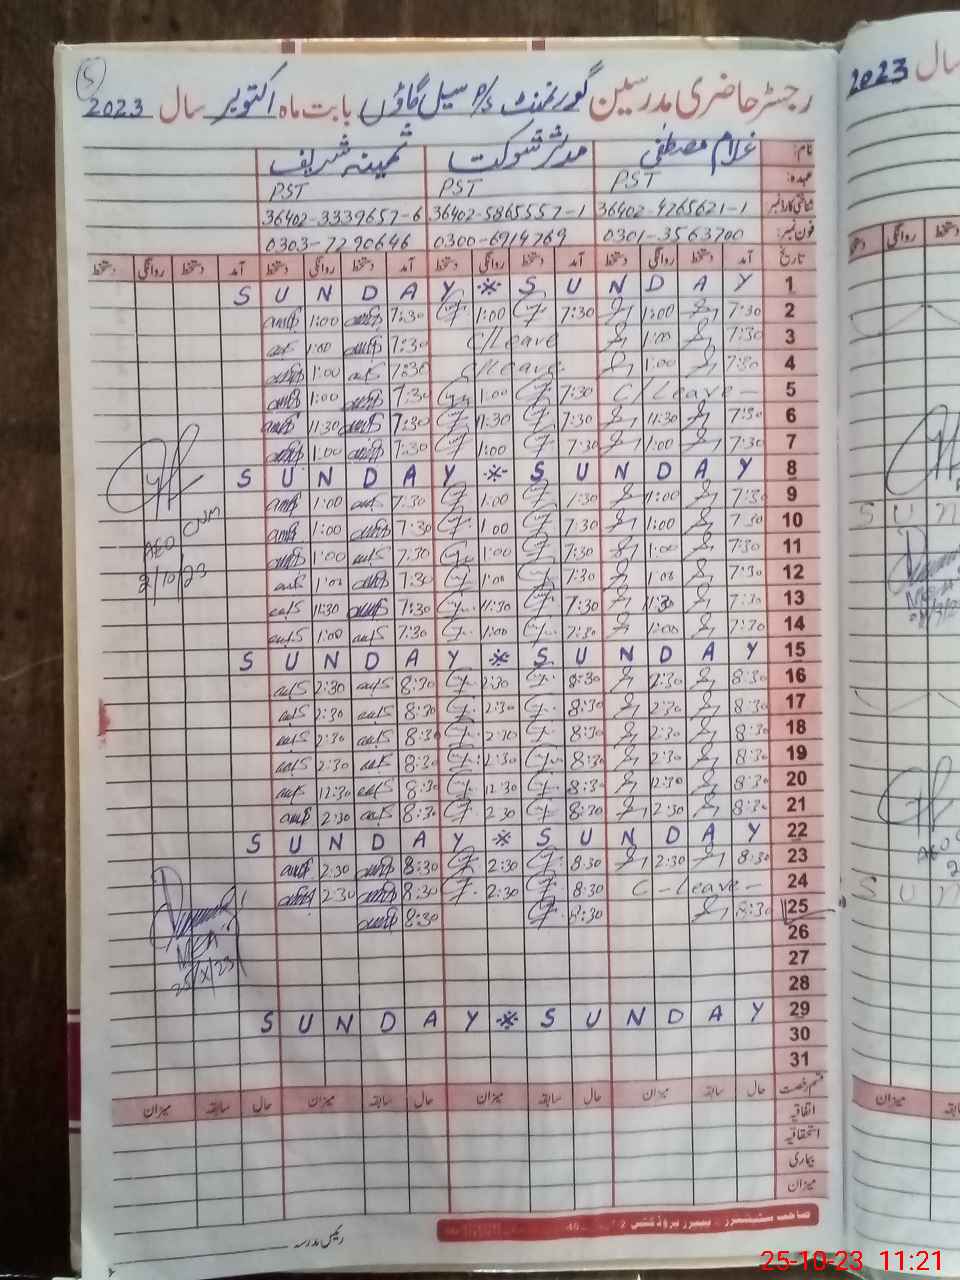 رجسٹر حاضری مدرسین گورنمنٹ P/S سیل گاؤں بابت ماہ اکتوبر سال 2023
نام: غلام مصطفٰی مدثر شوکت ثمینہ شریف
عہدہ: PST PST PST
شناختی کارڈ نمبر 36402-4265621-1 36402-5865557-1 36402-3339657-6
فون نمبر: 0301-3563700 0300-6914769 0303-7290646
تاریخ آمد دستخط روانگی دستخط آمد دستخط روانگی دستخط آمد دستخط روانگی دستخط آمد دستخط روانگی دستخط
1 S U N D A Y ※ S U N D A Y
2 7:30 1:00 7:30 1:00 7:30 1:00
3 7:30 1:00 C/Leave 7:30 1:00
4 7:30 1:00 C/Leave 7:30 1:00
5 C/Leave - 7:30 1:00 7:30 1:00
6 7:30 11:30 7:30 11:30 7:30 11:30
7 7:30 1:00 7:30 1:00 7:30 1:00
8 S U N D A Y ※ S U N D A Y
9 7:30 1:00 7:30 1:00 7:30 1:00
10 7:30 1:00 7:30 1:00 7:30 1:00
11 7:30 1:00 7:30 1:00 7:30 1:00
12 7:30 1:00 7:30 1:00 7:30 1:00
13 7:30 11:30 7:30 11:30 7:30 11:30
14 7:30 1:00 7:30 1:00 7:30 1:00
15 S U N D A Y ※ S U N D A Y
16 8:30 2:30 8:30 2:30 8:30 2:30
17 8:30 2:30 8:30 2:30 8:30 2:30
18 8:30 2:30 8:30 2:30 8:30 2:30
19 8:30 2:30 8:30 2:30 8:30 2:30
20 8:30 12:30 8:30 12:30 8:30 12:30
21 8:30 2:30 8:30 2:30 8:30 2:30
22 S U N D A Y ※ S U N D A Y
23 8:30 2:30 8:30 2:30 8:30 2:30
24 C-Leave- 8:30 2:30 8:30 2:30
25 8:30 8:30 8:30
26
27
28
29 S U N D A Y ※ S U N D A Y
30
31
قسم رخصت حال سابقہ میزان حال سابقہ میزان حال سابقہ میزان حال سابقہ میزان
اتفاقیہ
استحقاقیہ
بیماری
میزان
رئیس مدرسہ
AEO
2/10/23
MEA
25/X/23
سال 2023
25-10-23 11:21